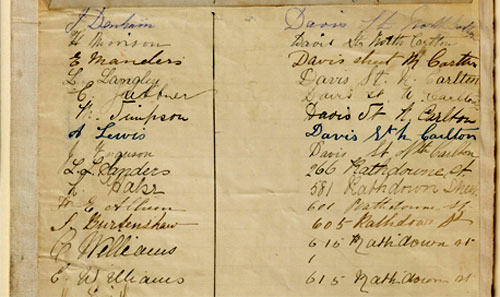 J Denham Davis St North Carlton
H Morrison Davis St North Carlton
E Manders Davis street N Carlton
L. Langley Davis St. N. Carlton
C. Davis St N Carlton
W. Timpson Davis St N Carlton
A Lewis Davis St N Carlton
J Ferguson Davis St Nth Carlton
L. L. Sanders 266 Rathdowne St
Hake 581 Rathdown Street
W E Allison 601 Rathdowne St
S Burtenshaw 605 Rathdown St
Williams 615 Rathdown st
E Williams 615 Rathdown st